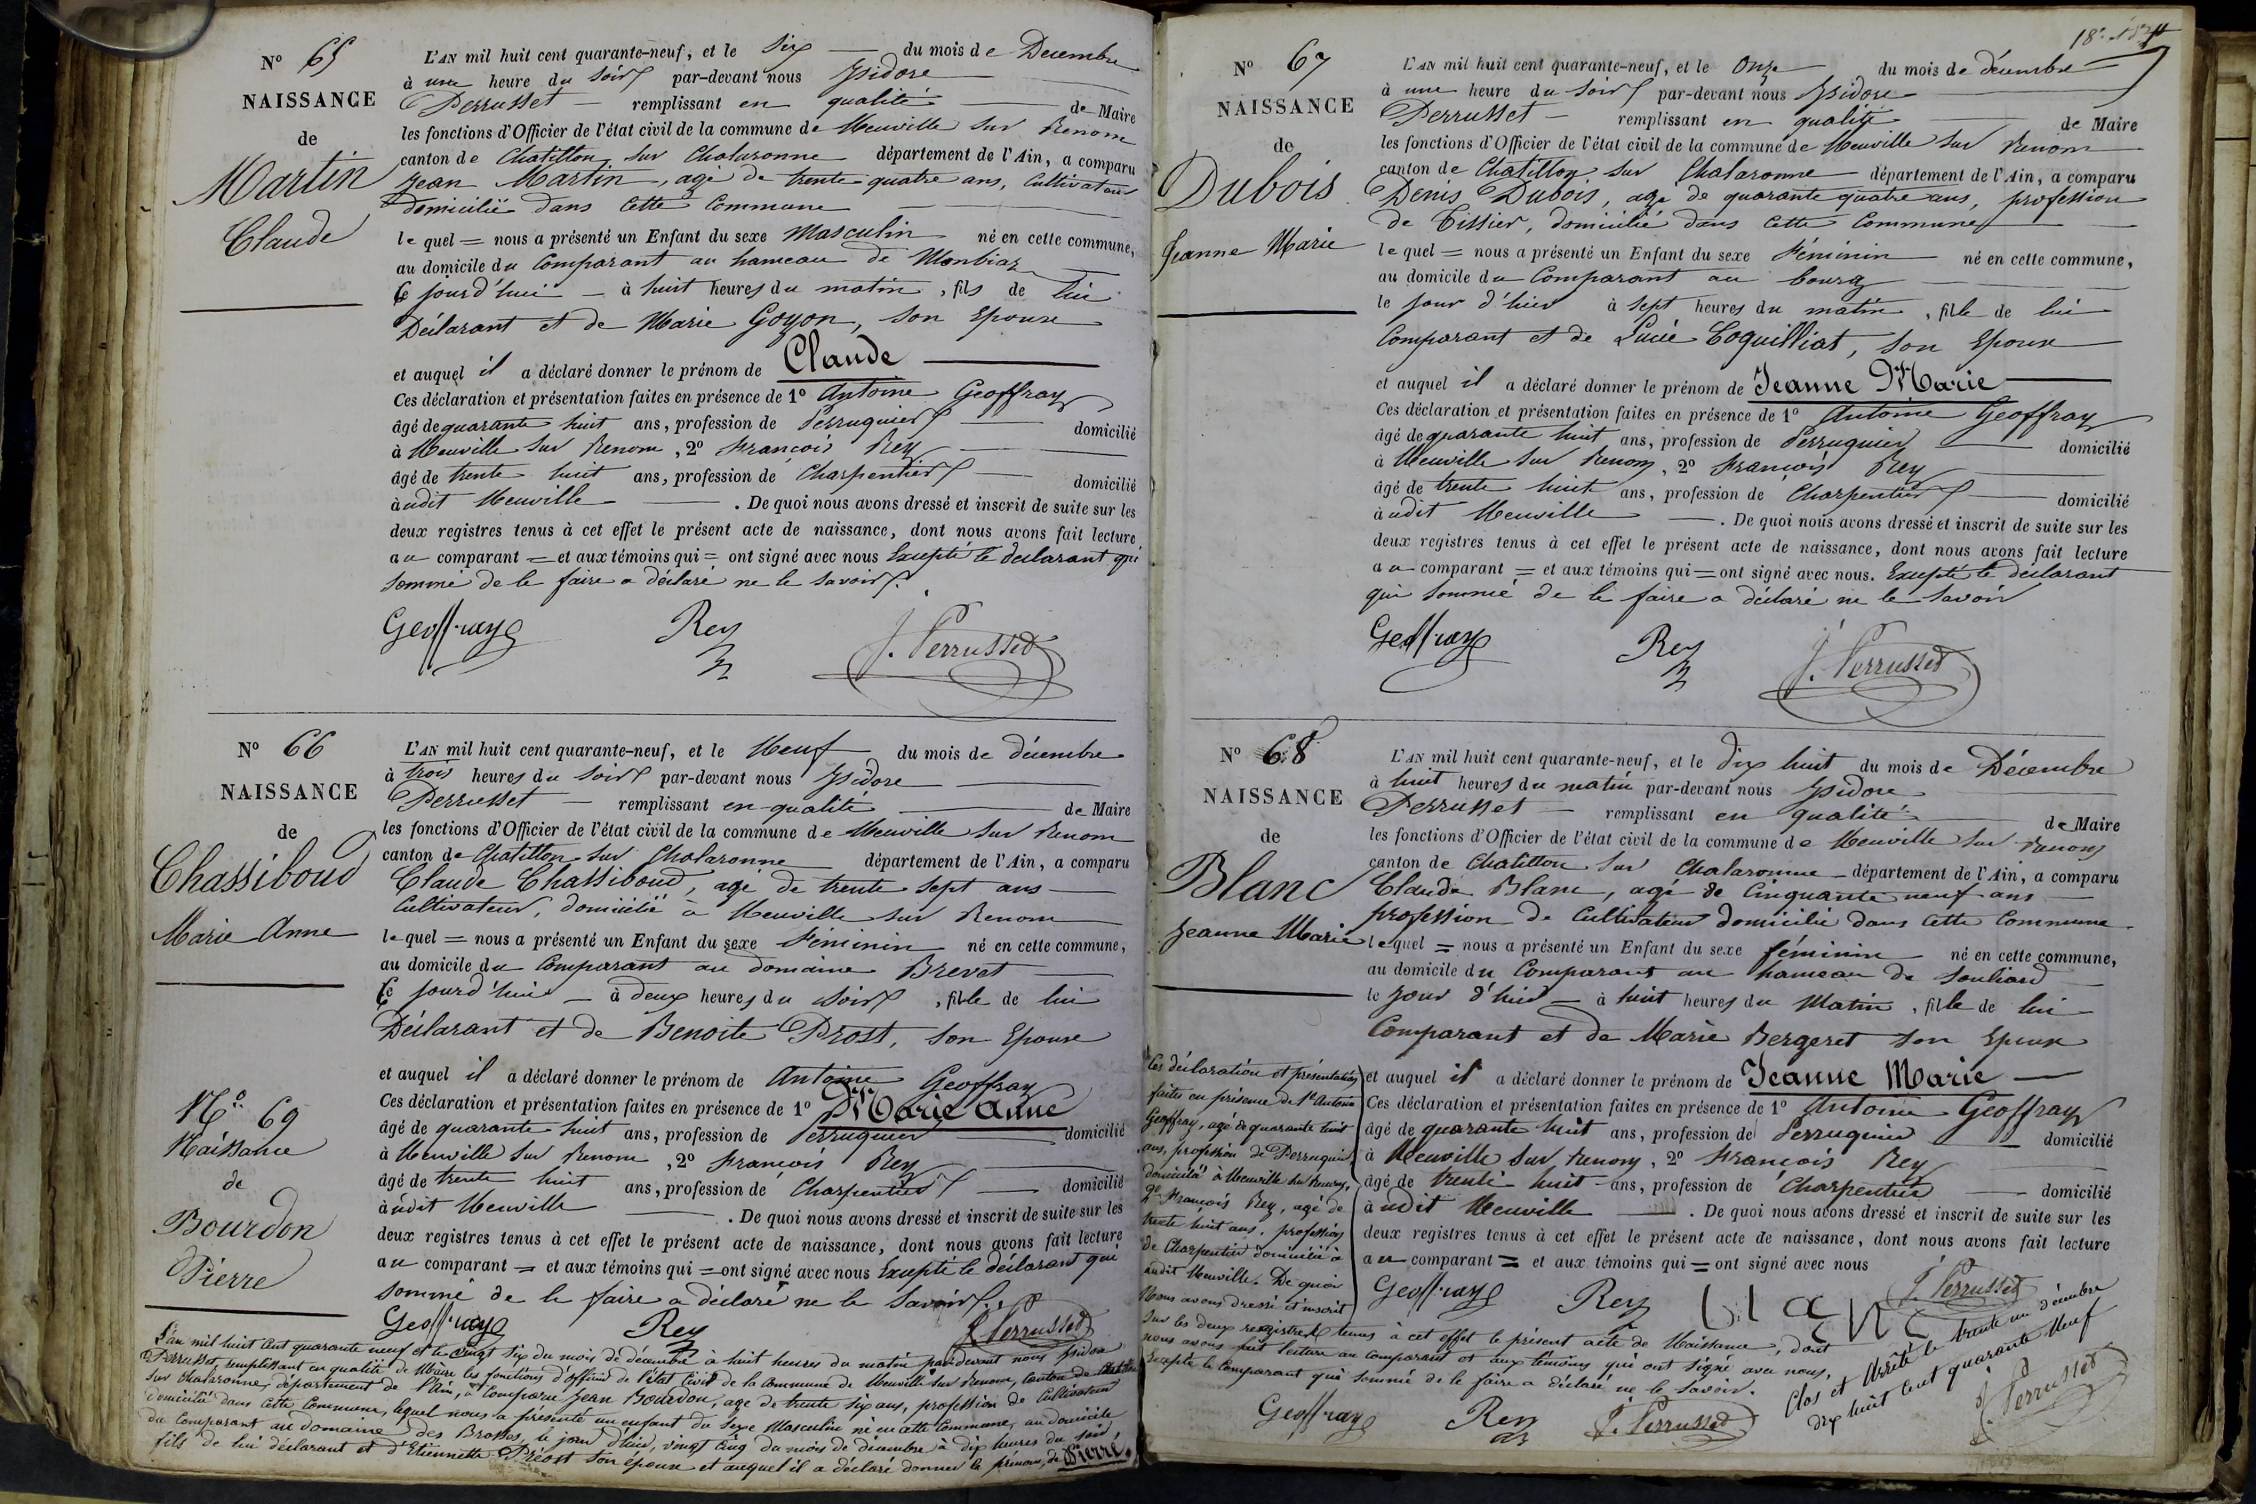 N° 65
NAISSANCE
de
Martin
Claude
L'AN mil huit cent quarante-neuf, et le six du mois de Decembre
à une heure du soir par-devant nous Ysidore
Perrusset remplissant en qualité de Maire
les fonctions d'Officier de l'état civil de la commune de Neuville sur Renom
canton de Chatillon sur Chalaronne département de l'Ain, a comparu
Jean Martin, agé de trente quatre ans, Cultivateur
domicilié dans cette Commune
lequel = nous a présenté un Enfant du sexe Masculin né en cette commune,
au domicile du Comparant au hameau de Monbiaz
Ce jourd'hui à huit heures du matin, fils de lui
Déclarant et de Marie Goyon, son Epouse
et auquel il a déclaré donner le prénom de Claude
Ces déclaration et présentation faites en présence de 1° Antoine Geoffray
âgé de quarante huit ans, profession de Perruquier domicilié
à Neuville sur Renom, 2° François Rey
âgé de trente huit ans, profession de Charpentier domicilié
àudit Neuville. De quoi nous avons dressé et inscrit de suite sur les
deux registres tenus à cet effet le présent acte de naissance, dont nous avons fait lecture
au comparant = et aux témoins qui = ont signé avec nous Excepté le declarant qui
sommé de le faire a déclaré ne le savoir.
Geoffray Rey J. Perrusset
N° 66
NAISSANCE
de
Chassiboud
Marie Anne
L'AN mil huit cent quarante-neuf, et le Neuf du mois de décembre
à trois heures du soir par-devant nous Ysidore
Perrusset remplissant en qualité de Maire
les fonctions d'Officier de l'état civil de la commune de Neuville sur Renom
canton de Chatillon sur Chalaronne département de l'Ain, a comparu
Claude Chassiboud, agé de trente sept ans
Cultivateur, domicilié à Neuville sur Renom
lequel = nous a présenté un Enfant du sexe Féminin né en cette commune,
au domicile du Comparant au domaine Brevet
Ce jourd'hui à deux heures du soir, fille de lui
Déclarant et de Benoite Prost, son Epouse
et auquel il a déclaré donner le prénom de Antoine Geoffray
Ces déclaration et présentation faites en présence de 1° Marie Anne
âgé de quarante huit ans, profession de Perruquier domicilié
à Neuville sur Renom, 2° François Rey
âgé de trente huit ans, profession de Charpentier domicilié
àudit Neuville. De quoi nous avons dressé et inscrit de suite sur les
deux registres tenus à cet effet le présent acte de naissance, dont nous avons fait lecture
au comparant = et aux témoins qui = ont signé avec nous Excepté le déclarant qui
sommé de le faire a déclaré ne le savoir.
Geoffray Rey J. Perrusset
N° 69
Naissance
de
Bourdon
Pierre
L'an mil huit cent quarante neuf et le vingt six du mois de décembre à huit heures du matin pardevant nous Ysidore
Perrusset, remplissant en qualité de Maire les fonctions d'officier de l'état civil de la commune de Neuville sur Renom, canton de Chatillon
sur Chalaronne, département de l'Ain, a comparu Jean Bourdon, agé de trente six ans, profession de Cultivateur
domicilié dans cette Commune, lequel nous a présenté un enfant du sexe Masculin né en cette Commune, au domicile
du Comparant au domaine des Brosses, le jour d'hier, vingt cinq du mois de décembre à dix heures du soir,
fils de lui déclarant et d'Etiennette Préost son épouse et auquel il a déclaré donner le prénom, de Pierre.
18
N° 67
NAISSANCE
de
Dubois
Jeanne Marie
L'AN mil huit cent quarante-neuf, et le Onze du mois de décembre
à une heure du soir par-devant nous Ysidore
Perrusset remplissant en qualité de Maire
les fonctions d'Officier de l'état civil de la commune de Neuville sur Renom
canton de Chatillon sur Chalaronne département de l'Ain, a comparu
Denis Dubois, agé de quarante quatre ans, profession
de Tissier, domicilié dans cette Commune
lequel = nous a présenté un Enfant du sexe Féminin né en cette commune,
au domicile du Comparant au bourg
le jour d'hier à sept heures du matin, fille de lui
Comparant et de Lucie Coquilliat, son Epouse
et auquel il a déclaré donner le prénom de Jeanne Marie
Ces déclaration et présentation faites en présence de 1° Antoine Geoffray
âgé de quarante huit ans, profession de Perruquier domicilié
à Neuville sur Renom, 2° François Rey
âgé de trente huit ans, profession de Charpentier domicilié
àudit Neuville. De quoi nous avons dressé et inscrit de suite sur les
deux registres tenus à cet effet le présent acte de naissance, dont nous avons fait lecture
au comparant = et aux témoins qui = ont signé avec nous. Excepté le déclarant
qui sommé de le faire a déclaré ne le savoir
Geoffray Rey J. Perrusset
N° 68
NAISSANCE
de
Blanc
Jeanne Marie
L'AN mil huit cent quarante-neuf, et le dix huit du mois de Décembre
à huit heures du matin par-devant nous Ysidore
Perrusset remplissant en qualité de Maire
les fonctions d'Officier de l'état civil de la commune de Neuville sur Renom
canton de Chatillon sur Chalaronne département de l'Ain, a comparu
Claude Blanc, agé de Cinquante neuf ans
profession de Cultivateur domicilié dans cette Commune
lequel = nous a présenté un Enfant du sexe féminin né en cette commune,
au domicile du Comparant au hameau de Souliard
le jour d'hier à huit heures du Matin, fille de lui
Comparant et de Marie Bergeret son Epouse
et auquel il a déclaré donner le prénom de Jeanne Marie
Ces déclaration et présentation faites en présence de 1° Antoine Geoffray
âgé de quarante huit ans, profession de Perruquier domicilié
à Neuville sur Renom, 2° François Rey
âgé de trente huit ans, profession de Charpentier domicilié
àudit Neuville. De quoi nous avons dressé et inscrit de suite sur les
deux registres tenus à cet effet le présent acte de naissance, dont nous avons fait lecture
au comparant = et aux témoins qui = ont signé avec nous
Geoffray Rey blanc J. Perrusset
Ces déclaration et présentation
faites en présence de 1° Antoine
Geoffray, agé de quarante huit
ans, profession de Perruquier
domicilié à Neuville sur Renom,
2° François Rey, agé de
trente huit ans, profession
de Charpentier domicilié à
audit Neuville. De quoi
Nous avons dressé et inscrit
sur les deux registres tenus à cet effet le présent acte de Naissance, dont
nous avons fait lecture au comparant et aux témoins qui ont signé avec nous,
Excepté le Comparant qui sommé de le faire a déclaré ne le savoir.
Geoffray Rey J. Perrusset
Clos et Arrêté le trente un décembre
dix huit cent quarante Neuf
J. Perrusset